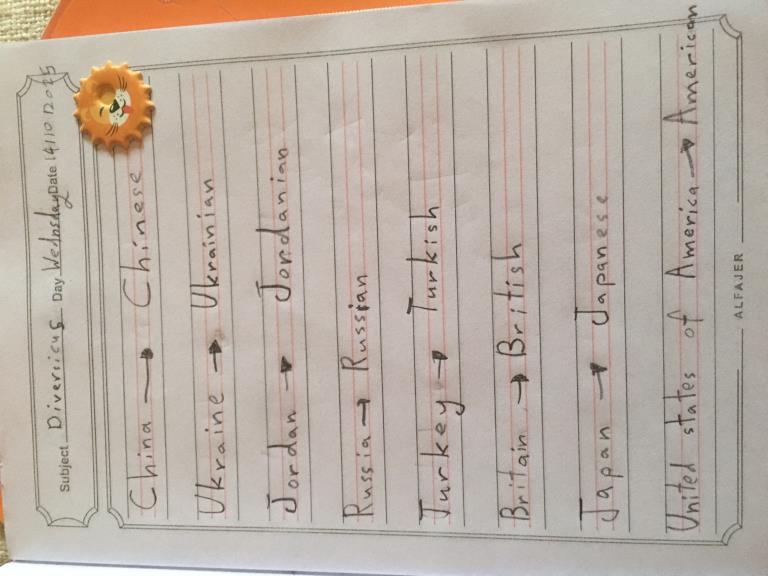 Subject Diversicus Day Wednsday Date 14/10/2025
China → Chinese
Ukraine → Ukrainian
Jordan → Jordanian
Russia → Russian
Turkey → Turkish
Britain → British
Japan → Japanese
United states of America → American
ALFAJER